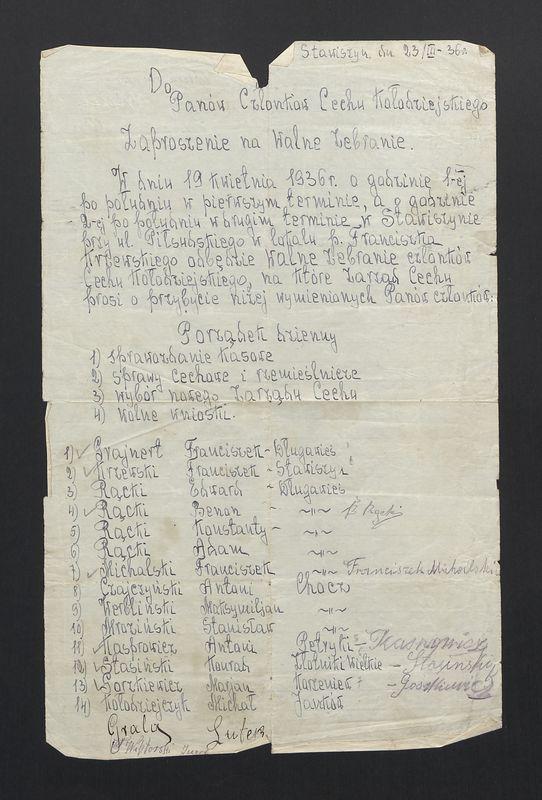 Stawiszyn dn 23/III-36r.
Do
Panów Członków Cechu Kołodziejskiego
Zaproszenie na Walne Zebranie.
W dniu 19 kwietnia 1936r. o godzinie 1-ej
po południu w pierwszym terminie, a o godzinie
2-ej po południu w drugim terminie w Stawiszynie
przy ul. Piłsudskiego w lokalu p. Franciszka
Krzewskiego odbędzie Walne Zebranie członków
Cechu Kołodziejskiego, na które Zarząd Cechu
prosi o przybycie niżej wymienionych Panów członków.
Porządek dzienny
1) sprawozdanie kasowe
2) sprawy cechowe i rzemieślnicze
3) wybór nowego Zarządu Cechu
4) wolne wnioski.
1) Grajnert Franciszek - Długawieś
2) Krzewski Franciszek - Stawiszyn
3) Rącki Edward - Długawieś
4) Rącki Benon - -"- B Rącki
5) Rącki Konstanty - -"-
6) Rącki Adam -"-
7) Michalski Franciszek -"- Franciszek Michalski
8) Czajczyński Antoni Chocz
9) Werbliński Maksymiljan -"-
10) Mroziński Stanisław -"-
11) Kasprowicz Antoni Petryki - Kasprowicz
12) Stasiński Konrad Złotniki Wielkie - Stasiński
13) Gorzkiewicz Marjan Korzeniew -
14) Kołodziejczyk Michał Janków
Grala